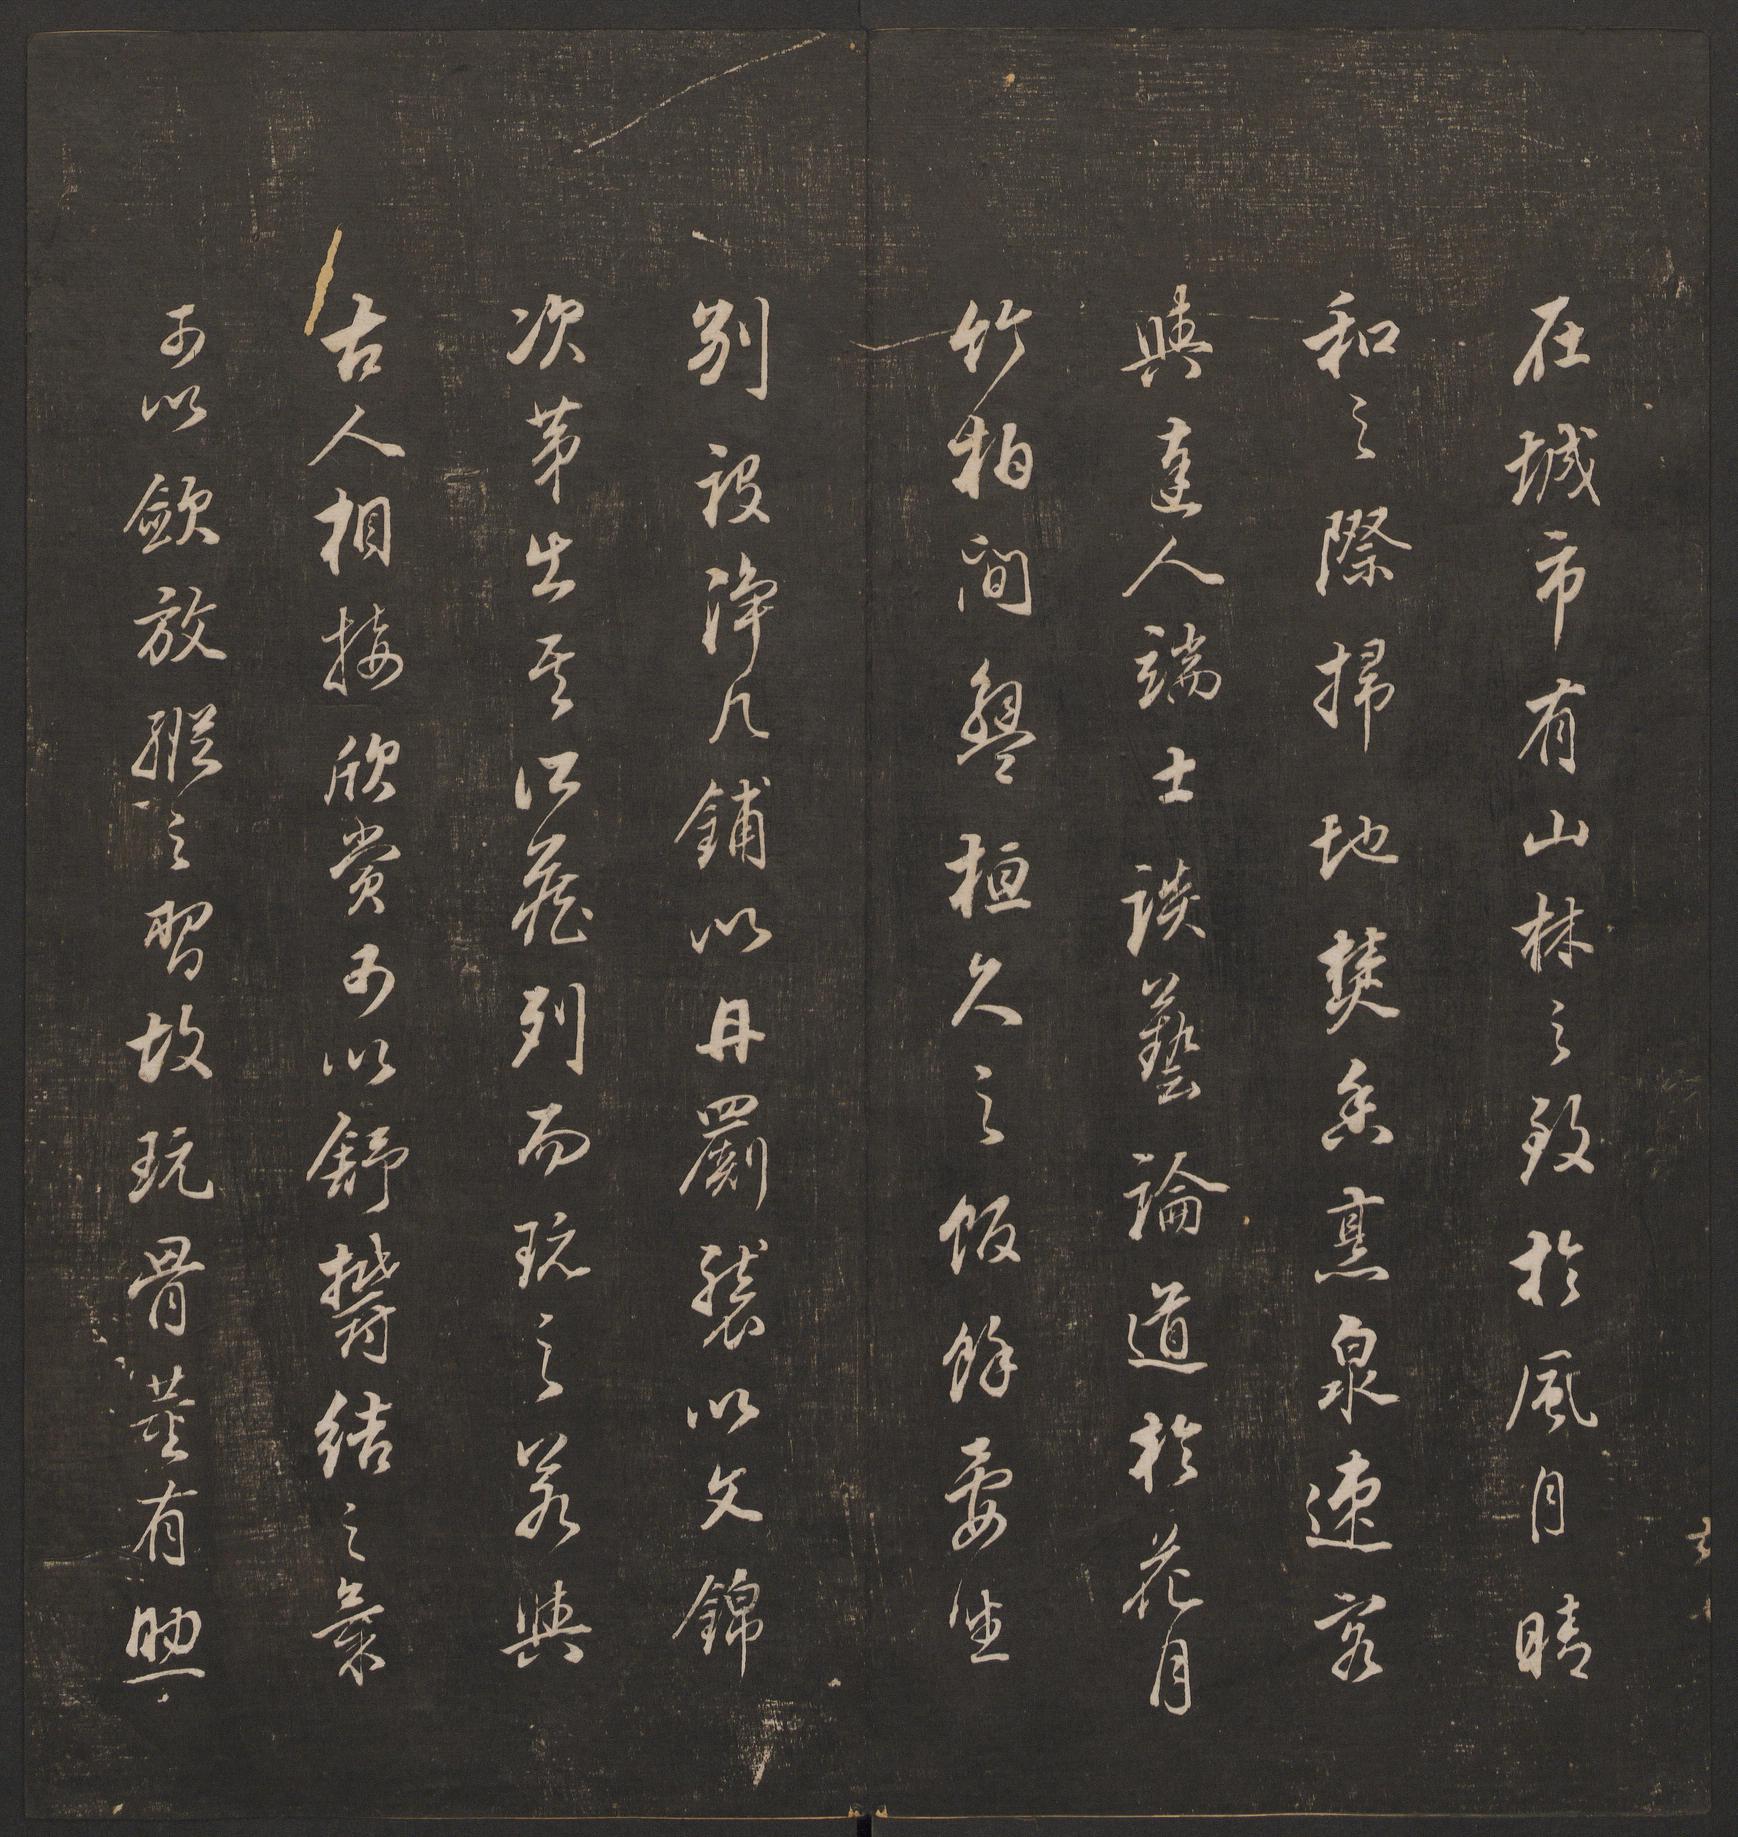 在城市有山林之致於風月晴
和之際掃地焚香烹泉速客
與達人端士談藝論道於花月
竹柏間盤桓久之飯餘晏坐
別設淨几鋪以丹罽襲以文錦
次第出其所藏列而玩之若與
古人相接欣賞可以舒鬱結之氣
可以斂放縱之習故玩骨董有助